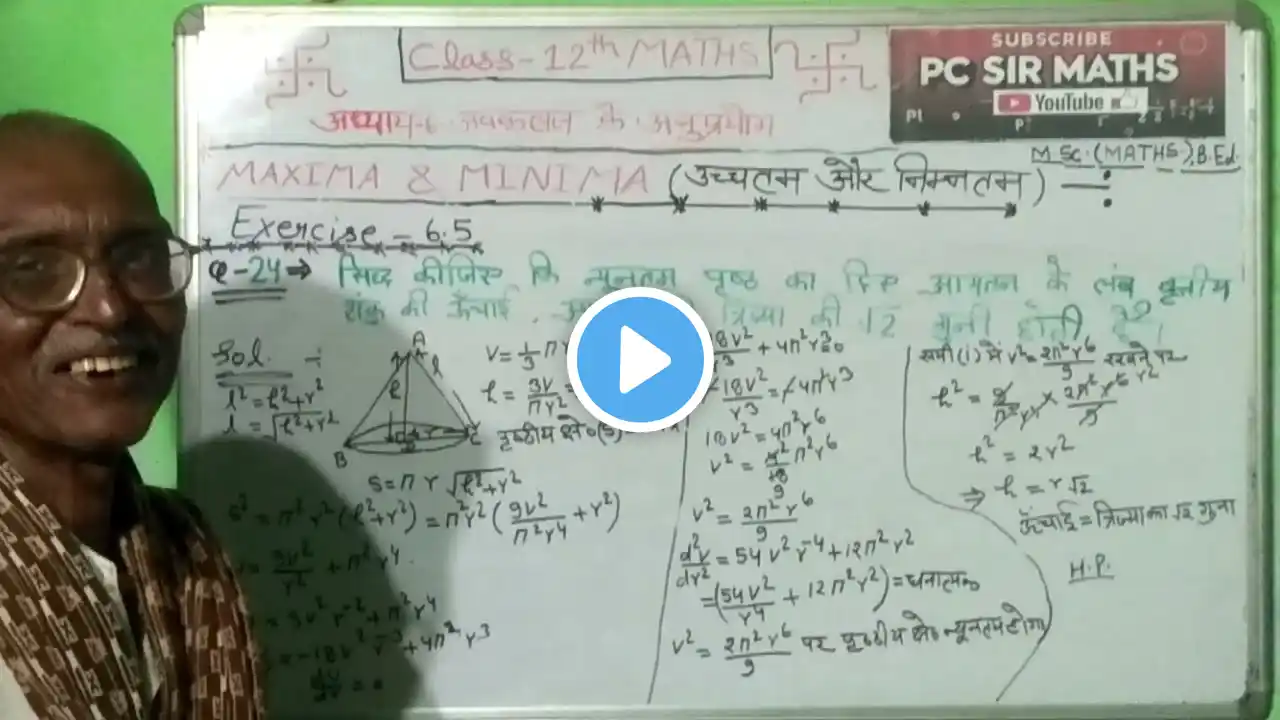 Class-12th MATHS
SUBSCRIBE
PC SIR MATHS
YouTube
अध्याय-6 अवकलज के अनुप्रयोग
M.Sc.(MATHS),B.Ed.
MAXIMA & MINIMA (उच्चतम और निम्नतम)
Exercise - 6.5
Q-24⇒ सिद्ध कीजिए कि न्यूनतम पृष्ठ का दिए आयतन के लंब वृत्तीय
शंकु की ऊँचाई, त्रिज्या की √2 गुनी होती है।
Sol. ÷
l² = h²+r²
l = √h²+r²
A
h
l
r
B
C
V = 1/3 π
h = 3V/πr²
पृष्ठीय क्षे०(S) =
S = π r √h²+r²
S² = π²r²(h²+r²) = π²r²(9V²/π²r⁴ + r²)
= 9V²/r² + π²r⁴
r⁻² + π²r⁴
= -18V² r⁻³ + 4π²r³
18V²/r³ + 4π²r³=0
-18V²/r³ = -4π²r³
18V² = 4π²r⁶
V² = 4/18 π²r⁶
9
V² = 2π²r⁶/9
d²V/dr² = 54V²r⁻⁴ + 12π²r²
= (54V²/r⁴ + 12π²r²) = धनात्मक
V² = 2π²r⁶/9 पर पृष्ठीय क्षे० न्यूनतम होगा
समी(i) में V² = 2π²r⁶/9 रखने पर
h² = 9/π²r⁴ × 2π²r⁶/9 r²
h² = 2r²
⇒ h = r√2
ऊँचाई = त्रिज्या का √2 गुना
H.P.